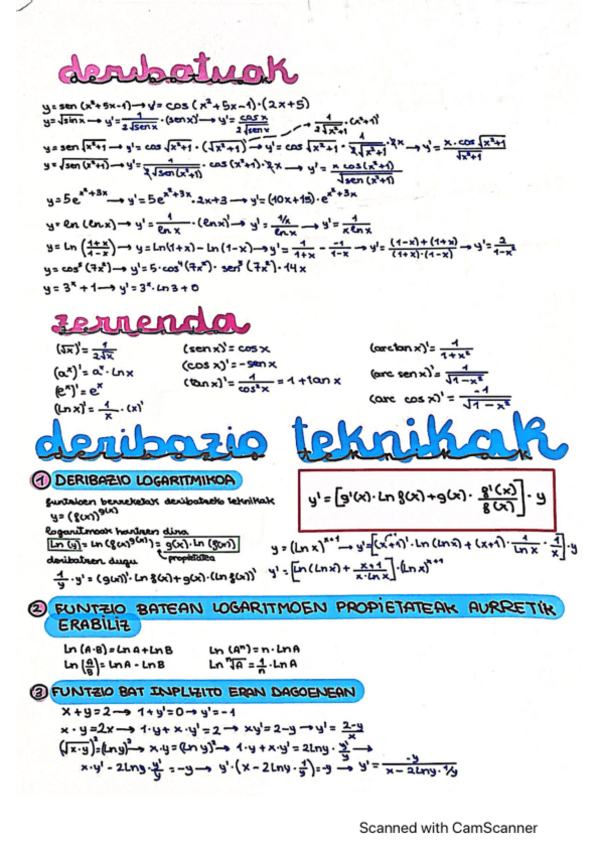 deribatuak
y = sen (x²+5x-1) → y' = cos (x²+5x-1)·(2x+5)
y = √sin x → y' = 1/(2√sen x) · (sen x)' → y' = cos x/(2√sen x)
1/(2√x²+1) · (x²+1)'
y = sen √x²+1 → y' = cos √x²+1 · (√x²+1)' → y' = cos √x²+1 · 1/(2√x²+1) · 2x → y' = x·cos √x²+1/√x²+1
y = √sen (x²+1) → y' = 1/(2√sen (x²+1)) · cos (x²+1)· 2x → y' = x cos(x²+1)/√sen (x²+1)
y = 5e^(x²+3x) → y' = 5e^(x²+3x) · 2x+3 → y' = (10x+15)·e^(x²+3x)
y = ln (ln x) → y' = 1/ln x · (ln x)' → y' = (1/x)/ln x → y' = 1/(x ln x)
y = ln (1+x/1-x) → y = ln(1+x) - ln(1-x) → y' = 1/(1+x) - -1/(1-x) → y' = (1-x)+(1+x)/(1+x)·(1-x) → y' = 2/(1-x²)
y = cos⁵ (7x²) → y' = 5·cos⁴(7x²)· sen⁵ (7x²)· 14x
y = 3ˣ + 1 → y' = 3ˣ · ln 3 + 0
zerrenda
(√x)' = 1/(2√x) (sen x)' = cos x (arctan x)' = 1/(1+x²)
(aˣ)' = aˣ · ln x (cos x)' = -sen x (arc sen x)' = 1/√1-x²
(eˣ)' = eˣ (tan x)' = 1/cos² x = 1 + tan x (arc cos x)' = -1/√1-x²
(ln x)' = 1/x · (x)'
deribazio teknikak
1 DERIBAZIO LOGARITMIKOA
funtzioen berreketak deribatzeko teknikak
y = (f(x))^g(x)
y' = [g'(x)· ln f(x) + g(x) · f'(x)/f(x)] · y
logaritmoak hartzen dira
ln (y) = ln (f(x)^g(x)) = g(x)· ln (f(x))
propietatea
deribatzen dugu
1/y · y' = (g(x))' · ln f(x) + g(x)· (ln f(x))'
y = (ln x)^(x+1) → y' = [(x+1)' · ln (ln x) + (x+1) · 1/ln x · 1/x] · y
y' = [ln (ln x) + x+1/x·ln x] · (ln x)^(x+1)
2 FUNTZIO BATEAN LOGARITMOEN PROPIETATEAK AURRETIK
ERABILIZ
ln (A·B) = ln A + ln B ln (Aⁿ) = n · ln A
ln (A/B) = ln A - ln B ln ⁿ√A = 1/n · ln A
3 FUNTZIO BAT INPLIZITO ERAN DAGOENEAN
x + y = 2 → 1 + y' = 0 → y' = -1
x · y = 2x → 1·y + x·y' = 2 → xy' = 2-y → y' = 2-y/x
(√x·y)² = (ln y)² → x·y = (ln y)² → 1·y + x·y' = 2 ln y · y'/y →
x·y' - 2 ln y · y'/y = -y → y' · (x - 2 ln y · 1/y) = -y → y' = -y/(x - 2 ln y · 1/y)
Scanned with CamScanner